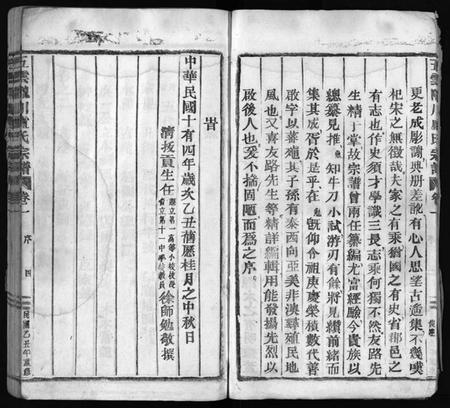 更老成彫謝典册差訛有心人思望古遥集不幾嘆
杞宋之無徵哉夫家之有乘猶國之有史省郡邑之
有志也作史須才學識三長志乘何獨不然友路先
生精于掌故宗譜曾兩任纂編尤富經驗今貴族以
總纂見推知牛刀小試游刃有餘將見纘前緒而
集其成胥於是乎在勉既仰令祖庚慶榮積數代善
啟宇以蕃殖其子孫有泰西向亞美非澳尋殖民地
風也又喜友路先生等精詳編輯用能發揚先烈以
啟後人也爰不揣固陋而為之序
旹
中華民國十有四年歲次乙丑舊曆桂月之中秋日
清拔貢生任
縣立第一高等小學校長
省立第十一中學校教員
徐師勉敬撰
宗譜
卷一
序
四
民國乙丑年重修